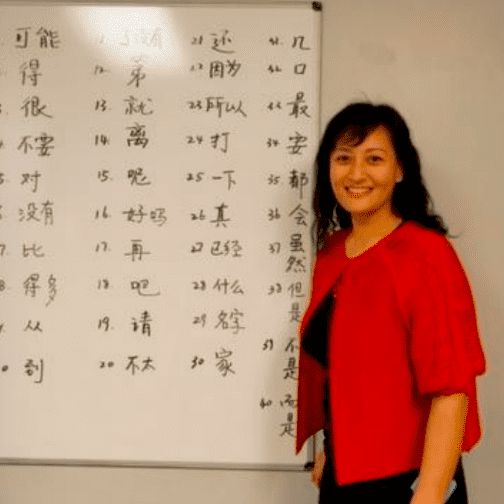 可能
得
很
不要
对
没有
比
得多
从
到
12. 第
13. 就
14. 离
15. 呢
16. 好吗
17. 再
18. 吧
19. 请
20 不太
21 还
因为
23 所以
24 打
25 一下
26 真
27 已经
28 什么
29 名字
30 家
几
口
最
34. 安
35. 都
36 会
37 虽
然
38 但
是
39 不
是
40 而
是